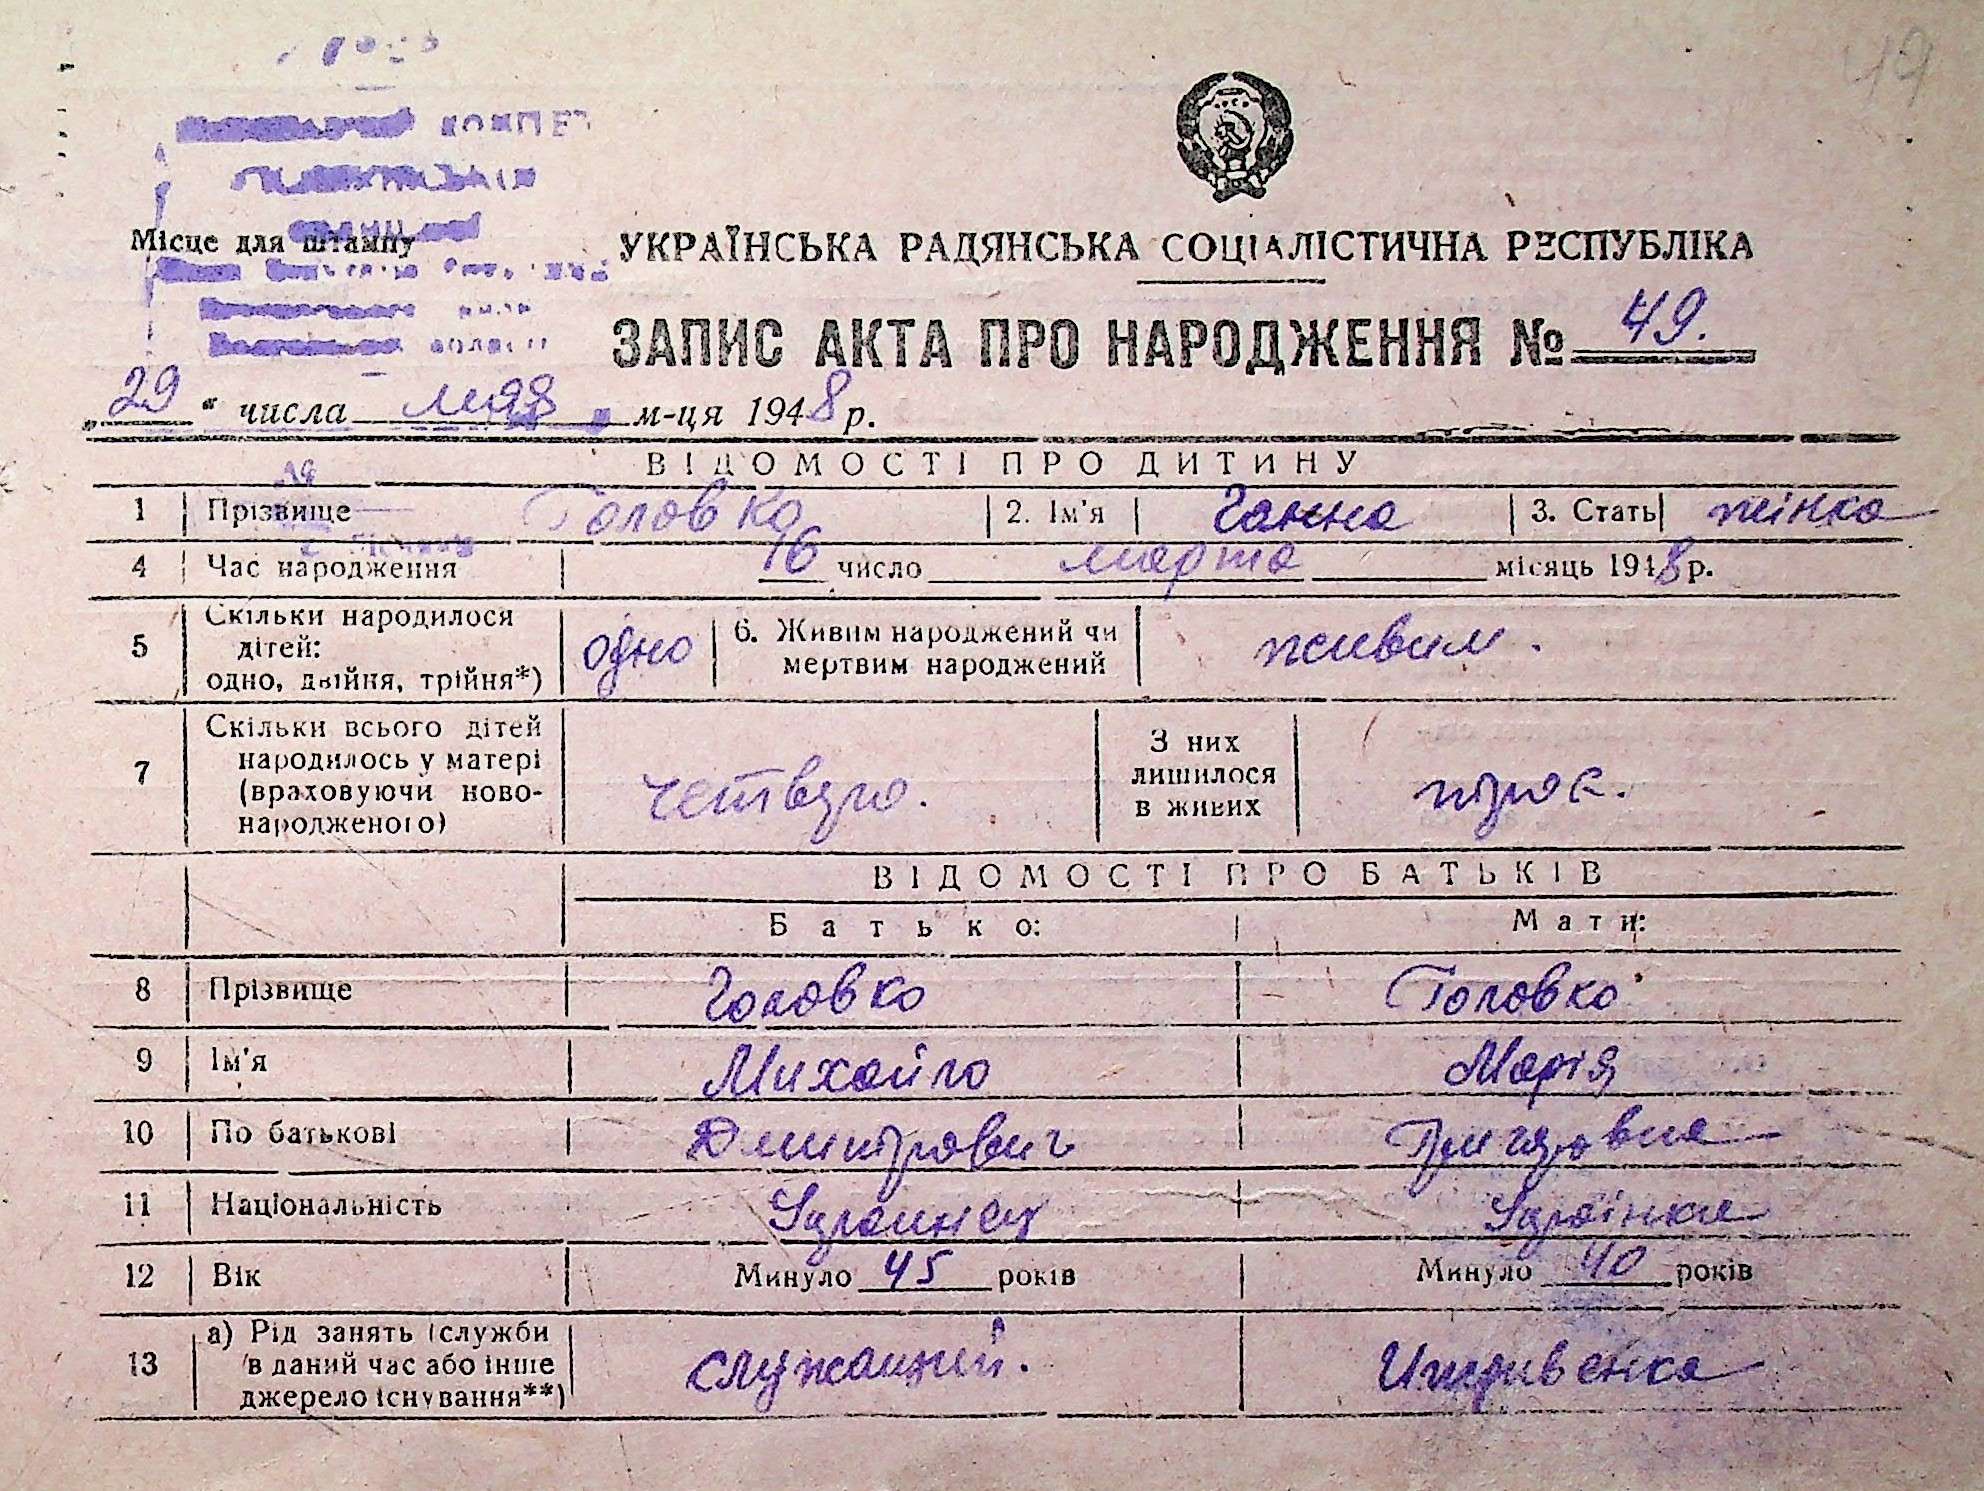 49
Місце для штампу
УКРАЇНСЬКА РАДЯНСЬКА СОЦІАЛІСТИЧНА РЕСПУБЛІКА
ЗАПИС АКТА ПРО НАРОДЖЕННЯ № 49.
„29“ числа мая м-ця 1948 р.
ВІДОМОСТІ ПРО ДИТИНУ
1 Прізвище Головко 2. Ім'я Ганна 3. Стать жінка
4 Час народження 16 число марта місяць 1948 р.
5 Скільки народилося дітей: одно, двійня, трійня*) одно 6. Живим народжений чи мертвим народжений живим.
7 Скільки всього дітей народилось у матері (враховуючи ново-народженого) четверо. З них лишилося в живих троє.
ВІДОМОСТІ ПРО БАТЬКІВ
Батько: Мати:
8 Прізвище Головко Головко
9 Ім'я Михайло Марія
10 По батькові Дмитрович Григоровна
11 Національність Украинец Українка
12 Вік Минуло 45 років Минуло 40 років
13 а) Рід занять (служби в даний час або інше джерело існування**) служащий. Иждивенка